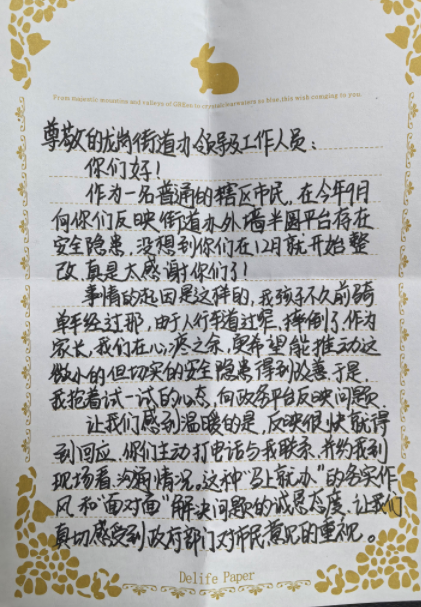 From majestic mountains and valleys of
to crystalclearwaters so blue,this wish comging to you.
尊敬的龙岗街道办领导及工作人员：
你们好！
作为一名普通的辖区市民，在今年9月
向你们反映街道办外墙半圆平台存在
安全隐患，没想到你们在12月就开始整
改，真是太感谢你们了！
事情的起因是这样的，我孩子不久前骑
单车经过那，由于人行车道过窄，摔倒了。作为
家长，我们在心疼之余，更希望能推动这
微小的但切实的安全隐患得到改善，于是，
我抱着试一试的心态，向政务平台反映问题。
让我们感到温暖的是，反映很快就得
到回应，你们主动打电话与我联系，并约我到
现场看、沟通情况。这种“马上就办”的务实作
风和“面对面”解决问题的诚恳态度，让我们
真切感受到政府部门对市民意见的重视。
Delife Paper